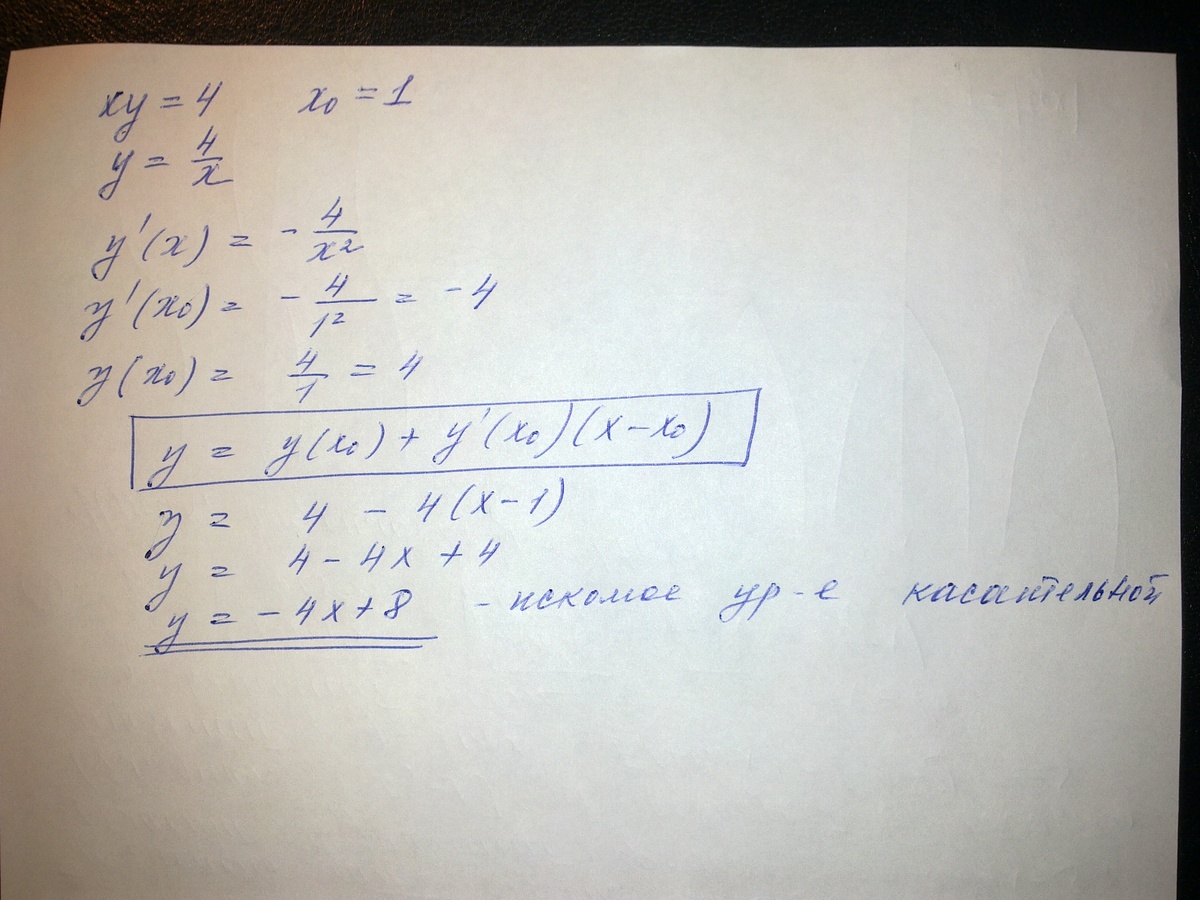 xy = 4 x₀ = 1
y = 4/x
y'(x) = - 4/x²
y'(x₀) = - 4/1² = - 4
y(x₀) = 4/1 = 4
y = y(x₀) + y'(x₀)(x - x₀)
y = 4 - 4(x - 1)
y = 4 - 4x + 4
y = - 4x + 8 - искомое ур-е касательной